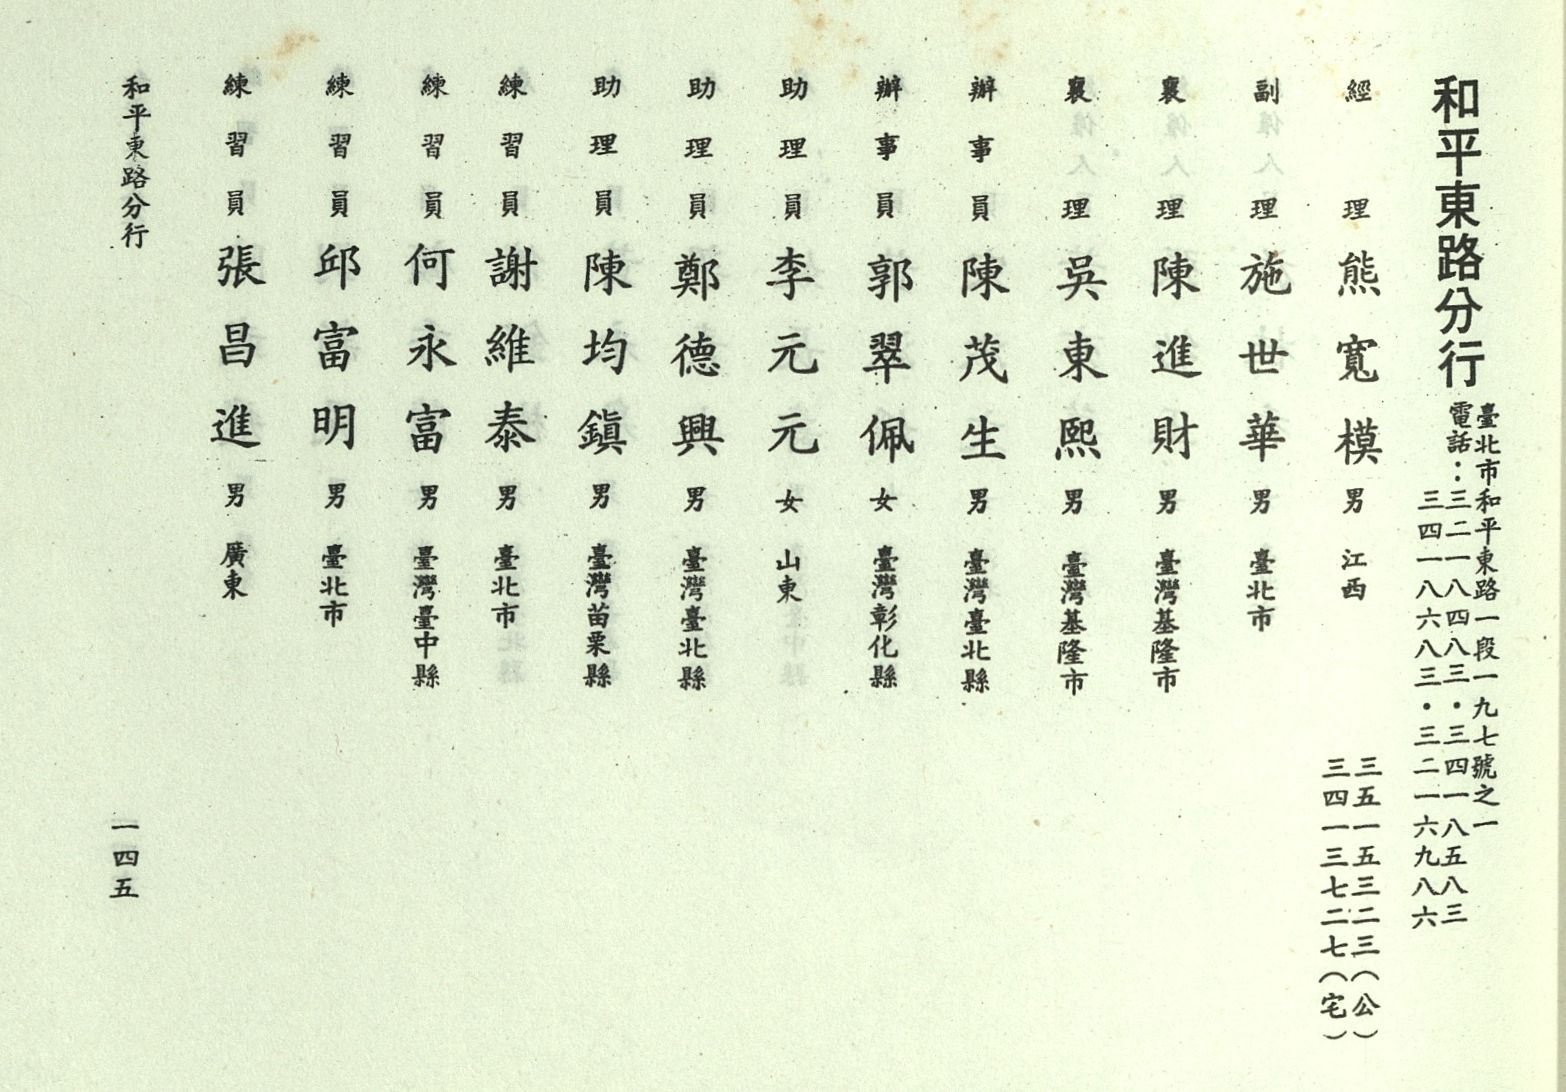 和平東路分行
臺北市和平東路一段一九七號之一
電話：三二一八四八三・三四一八五八三
三四一八六八三・三二一六九八六
經理 熊寬模 男 江西 三五一五三二三（公）
三四一三七二七（宅）
副理 施世華 男 臺北市
襄理 陳進財 男 臺灣基隆市
襄理 吳東熙 男 臺灣基隆市
辦事員 陳茂生 男 臺灣臺北縣
辦事員 郭翠佩 女 臺灣彰化縣
助理員 李元元 女 山東
助理員 鄭德興 男 臺灣臺北縣
助理員 陳均鎭 男 臺灣苗栗縣
練習員 謝維泰 男 臺北市
練習員 何永富 男 臺灣臺中縣
練習員 邱富明 男 臺北市
練習員 張昌進 男 廣東
和平東路分行
一四五